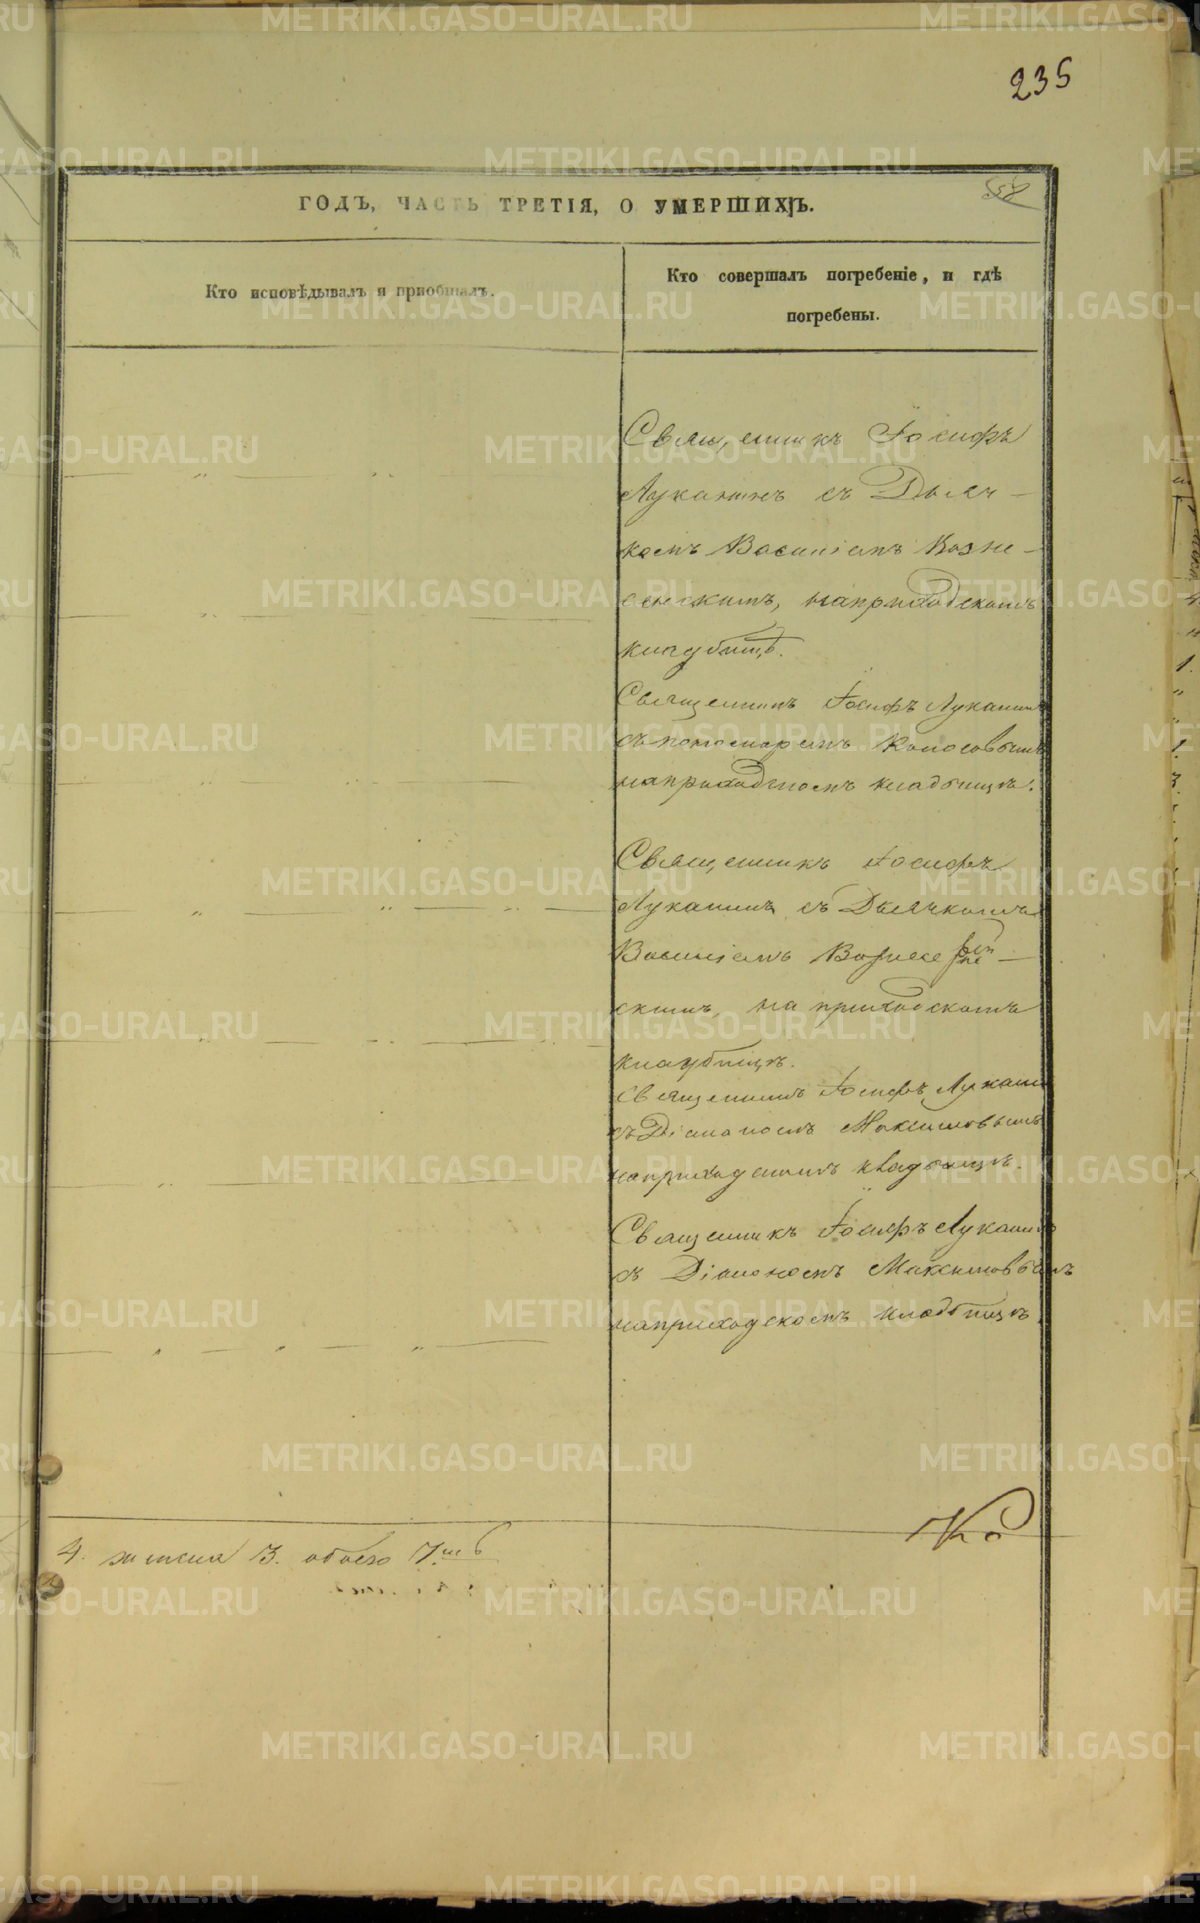 235
ГОДЪ, ЧАСТЬ ТРЕТІЯ, О УМЕРШИХЪ.
Кто исповѣдывалъ и пріобщалъ.
Кто совершалъ погребеніе, и гдѣ
погребены.
Священникъ Іосифъ
Луканинъ съ Дьяч-
комъ Василіемъ Возне-
сенскимъ, на приходскомъ
кладбищѣ.
Священникъ Іосифъ Луканинъ
съ пономаремъ Колосовымъ
на приходскомъ кладбищѣ.
Священникъ Іосифъ
Луканинъ съ Дьячкомъ
Василіемъ Вознесен-
скимъ, на приходскомъ
кладбищѣ.
Священникъ Іосифъ Луканинъ
съ Діакономъ Максимовымъ
на приходскомъ кладбищѣ.
Священникъ Іосифъ Луканинъ
съ Діакономъ Максимовымъ
на приходскомъ кладбищѣ.
4. женска 3. обоего 7.
METRIKI.GASO-URAL.RU